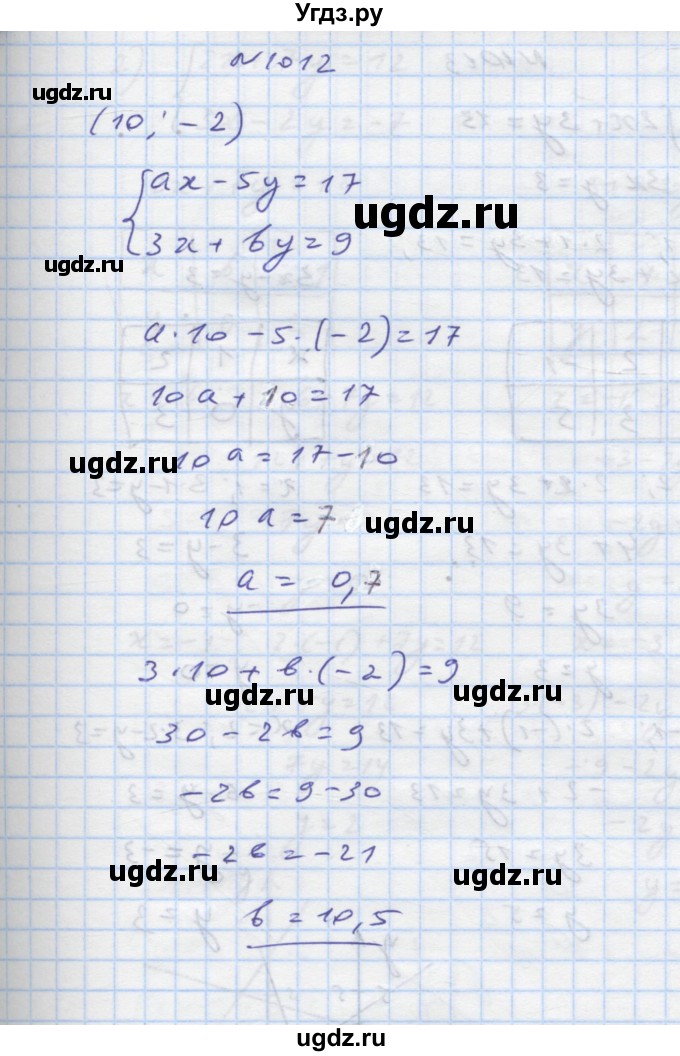 Угдз.ру
N1012
ugdz.ru
(10; -2)
{ax - 5y = 17
ugdz.ru
3x + by = 9
ugdz.ru
a·10 - 5·(-2) = 17
10a + 10 = 17
ugdz.ru 10a = 17 - 10
10a = 7 ugdz.ru
a = 0,7
3·10 + b·(-2) = 9
ugdz.ru ugdz.ru
30 - 2b = 9
-2b = 9 - 30
ugdz.ru -2b = -21 ugdz.ru
b = 10,5
ugdz.ru